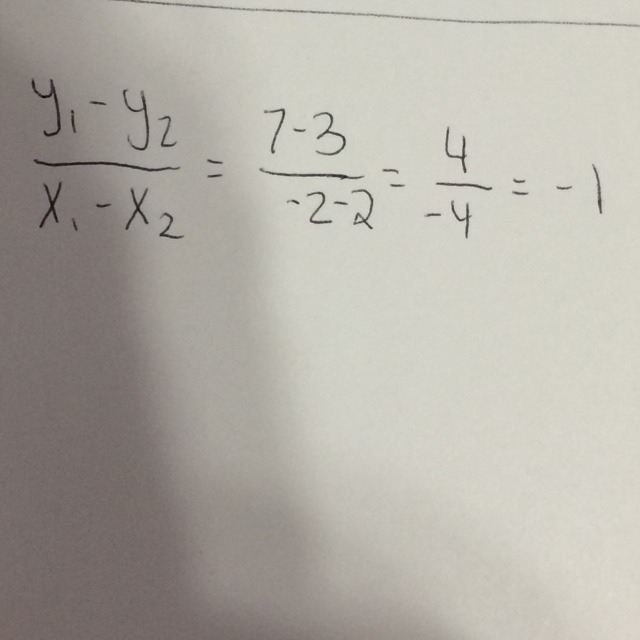 y₁-y₂/x₁-x₂ = 7-3/-2-2 = 4/-4 = -1